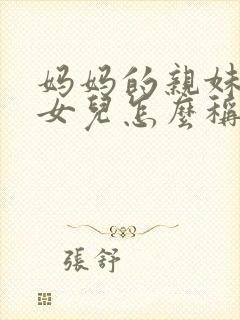 妈妈的親妹
女兒怎麼稱
張舒